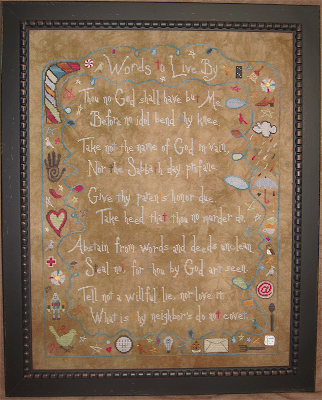 Words to Live By
Thou no God shall have but Me
Before no idol bend thy knee.
Take not the name of God in vain,
Nor the Sabbath day profane.
Give thy parents honor due.
Take heed that thou no murder do.
Abstain from words and deeds unclean.
Steal not for thou by God art seen.
Tell not a willful lie nor love it.
What is thy neighbor's do not covet.
@